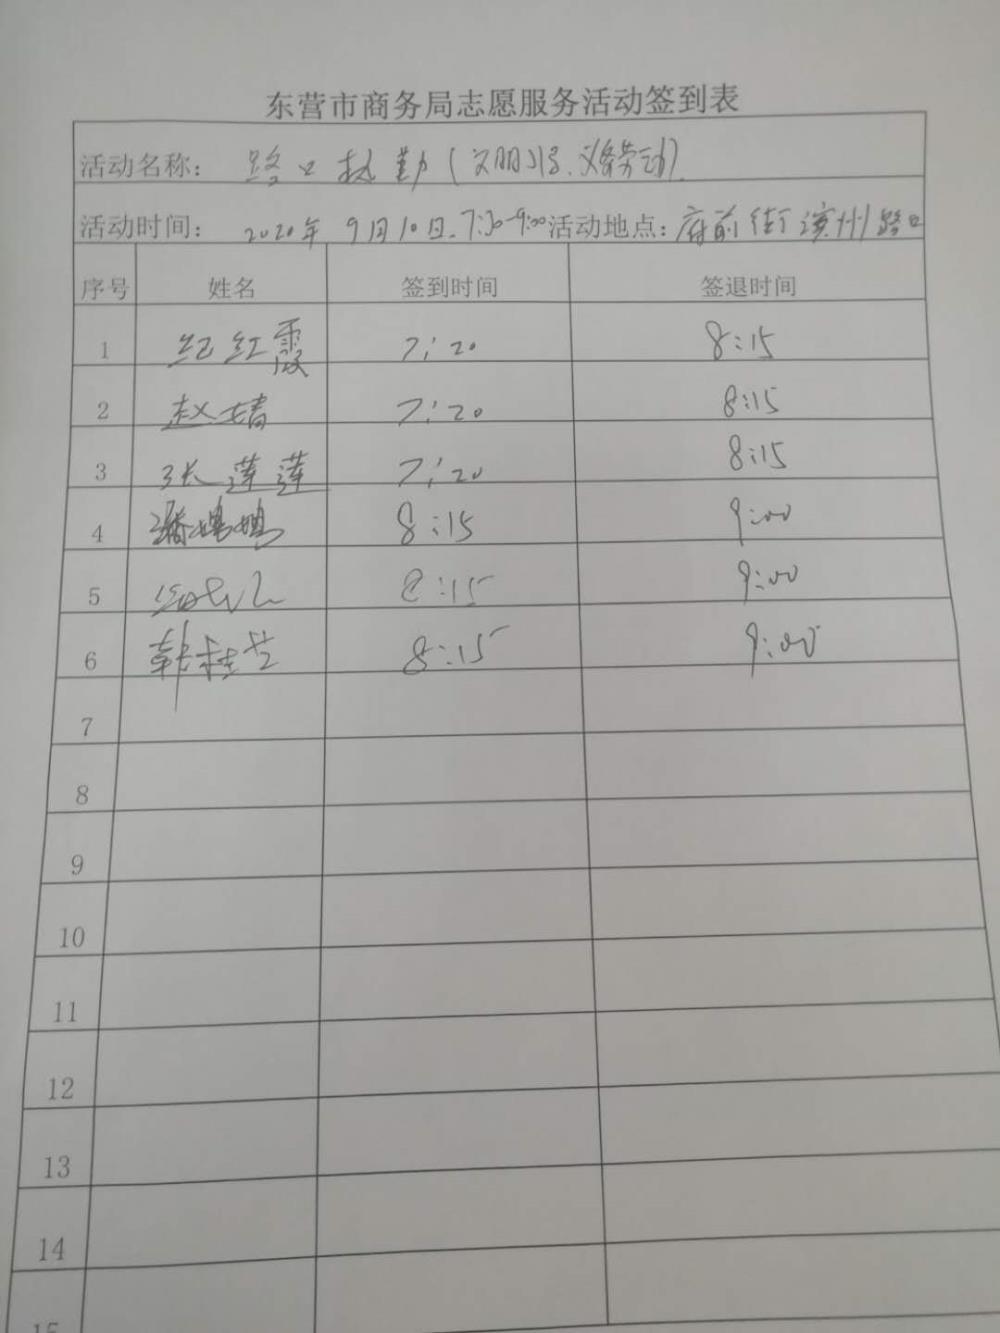 东营市商务局志愿服务活动签到表
活动名称： 路口执勤（文明引导、义务劳动）
活动时间： 2020年 9月10日. 7:30-9:00 活动地点：府前街滨州路口
序号 姓名 签到时间 签退时间
1 纪红霞 7:20 8:15
2 赵婧 7:20 8:15
3 张莲莲 7:20 8:15
4 8:15 9:00
5 8:15 9:00
6 韩桂芝 8:15 9:00
7
8
9
10
11
12
13
14
15